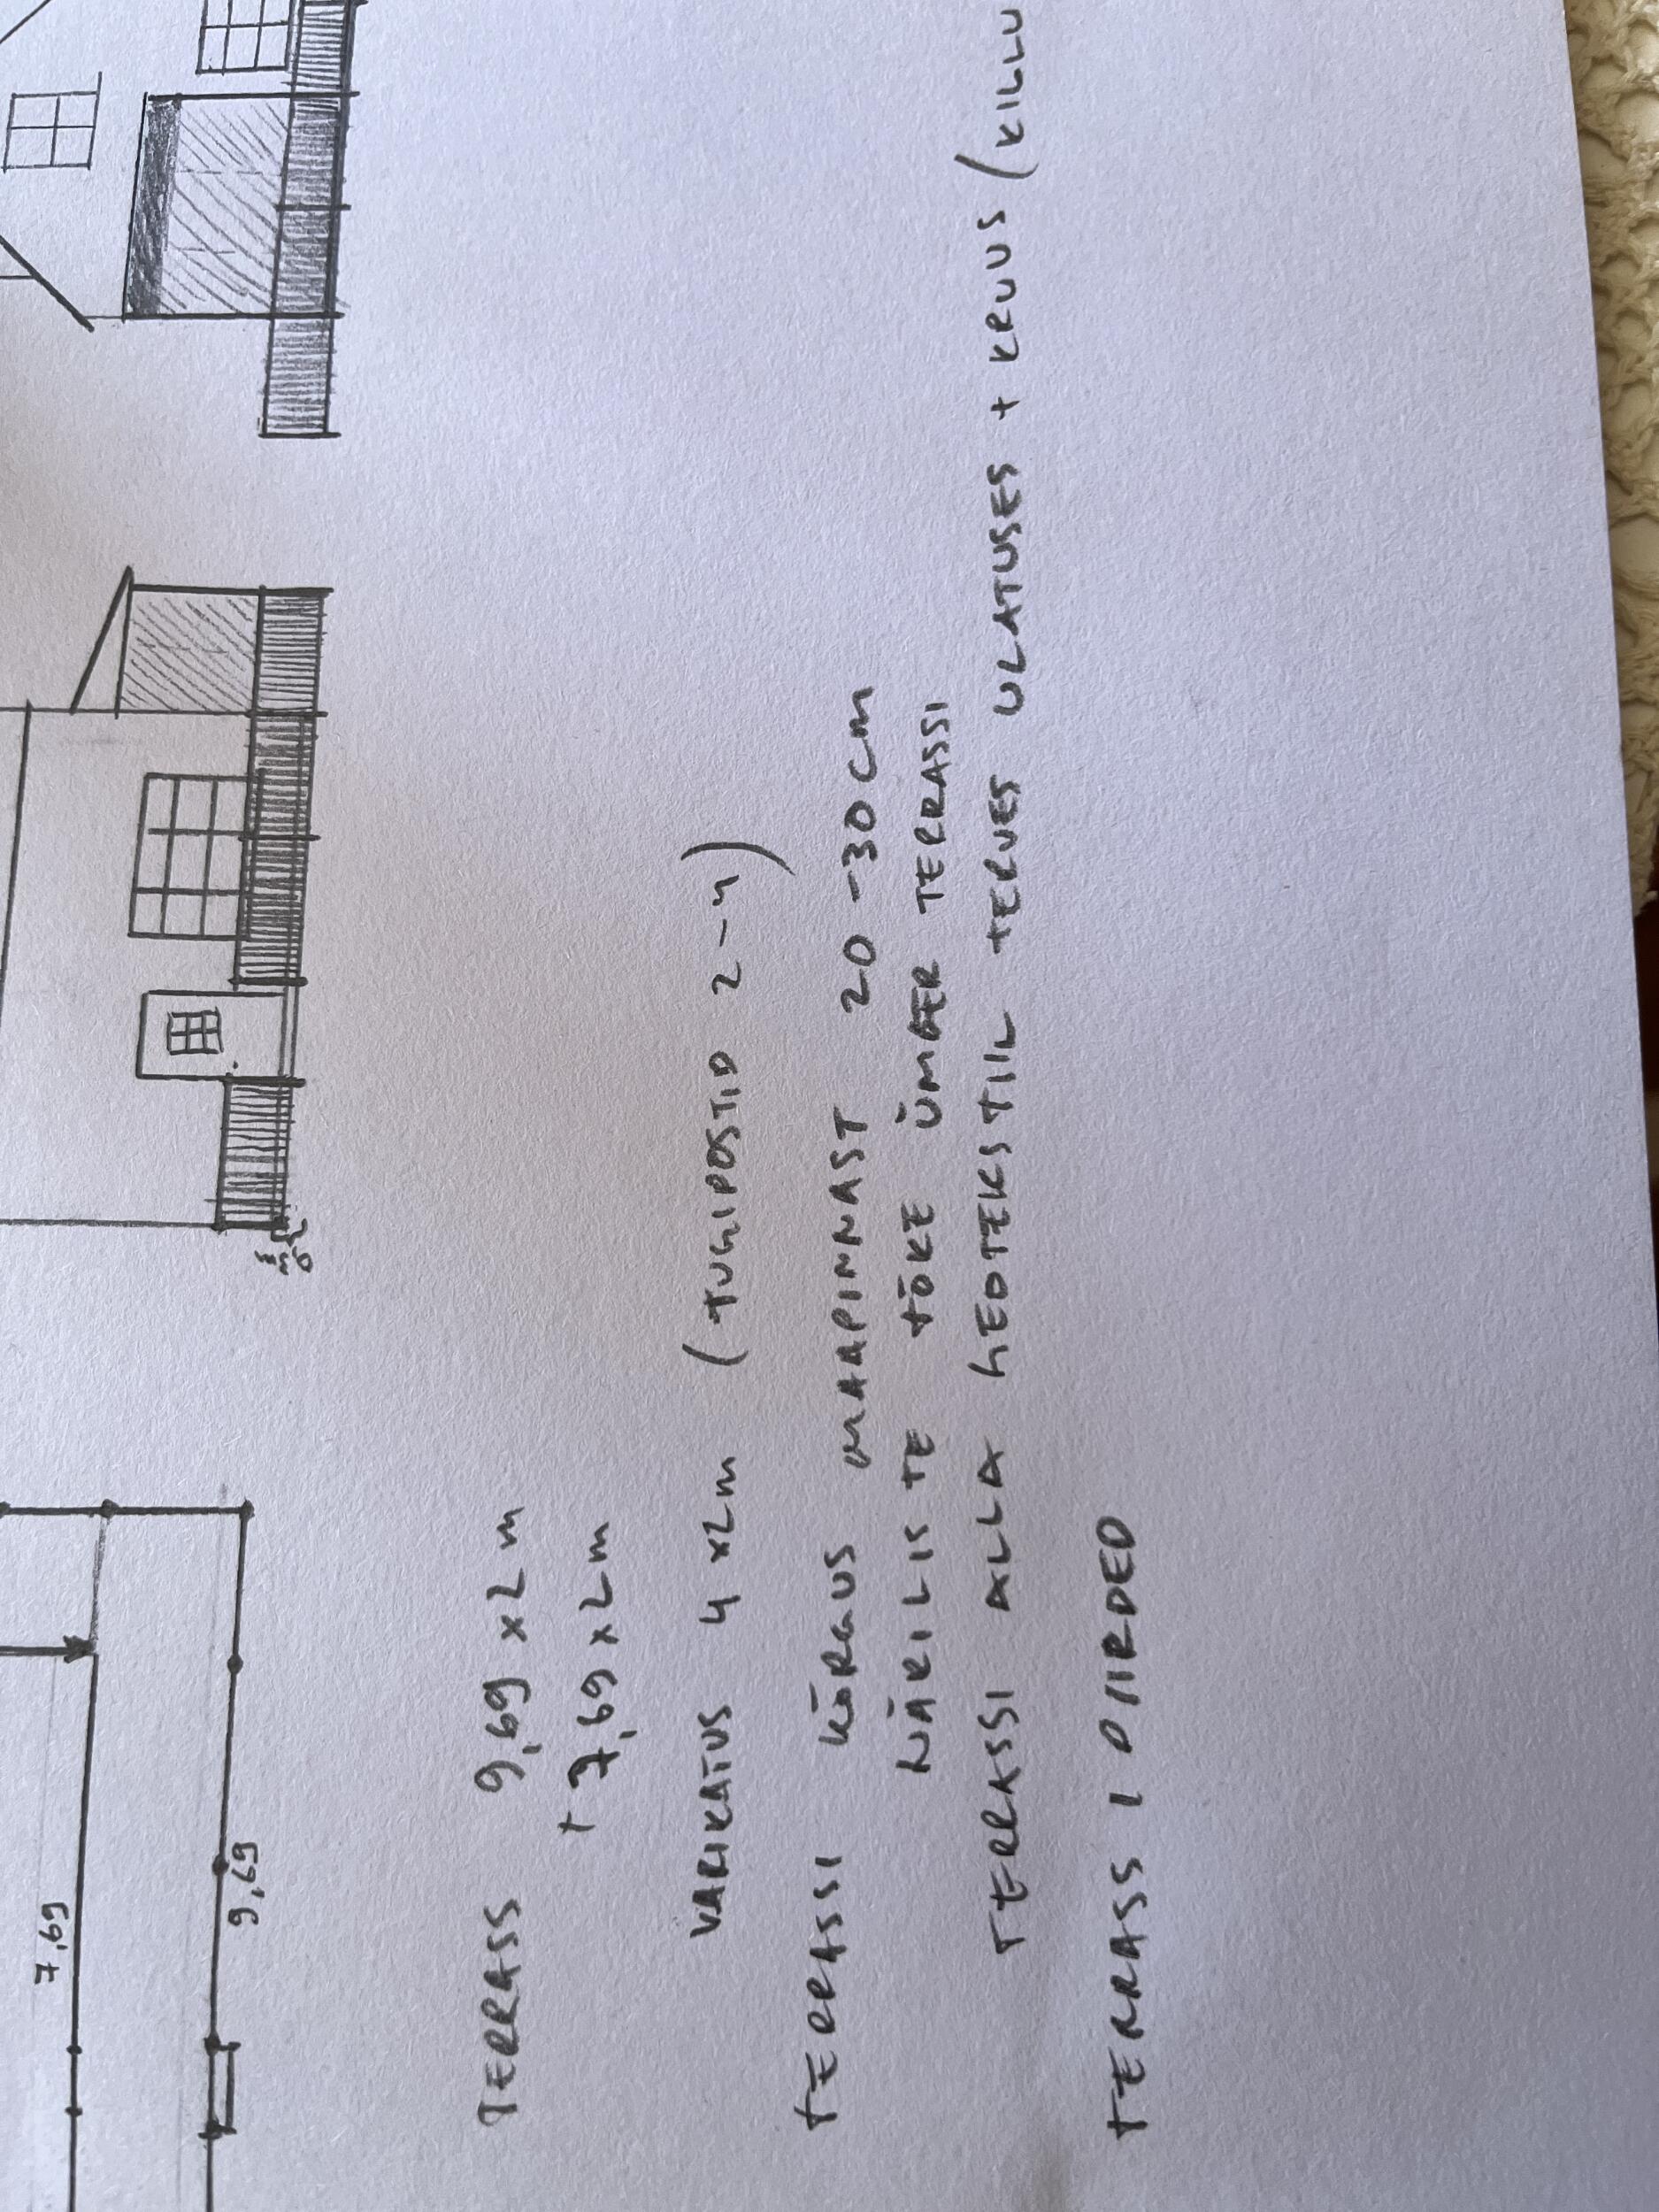 7,69
9,69
TERRASS 9,69 x 2 m
+ 7,69 x 2 m
VARIKATUS 4 x 2 m (TUGIPOSTID 2-4)
TERRASSI KÕRGUS MAAPINNAST 20-30 CM
NÄRILISTE TÕKE ÜMBER TERRASSI
TERRASSI ALLA GEOTEKSTIIL TERVES ULATUSES + KRUUS (KILLU
TERRASSI PIIRDED